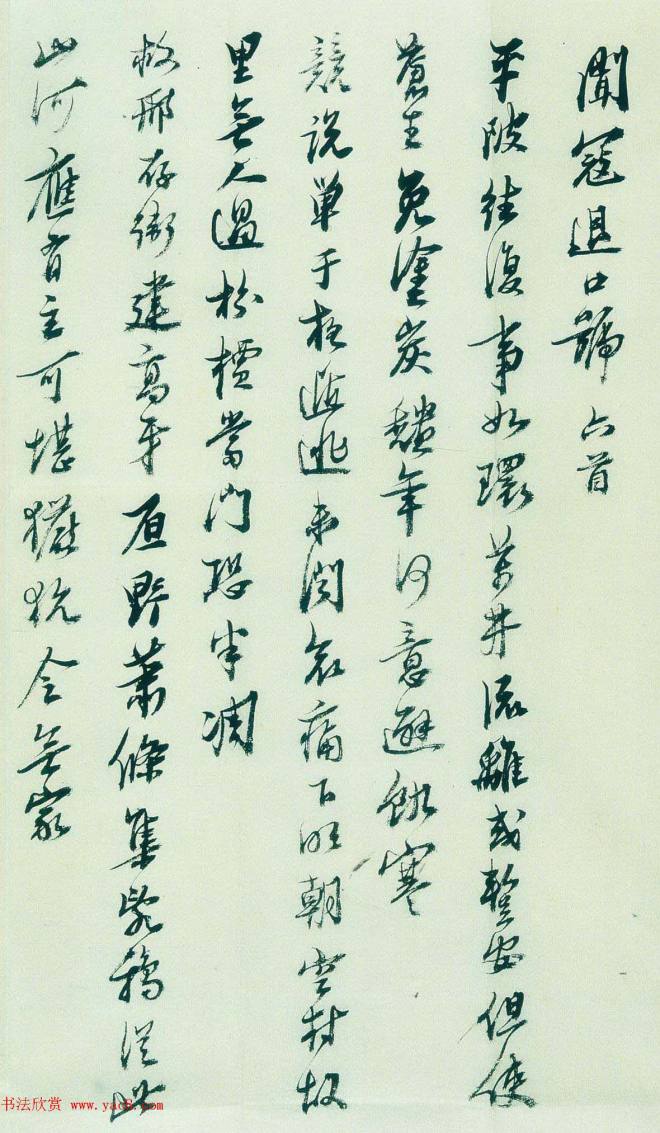 聞寇退口號六首
平陂往復事如環萬井流離或暫安但使
蒼生免塗炭年何意避飢寒
競說單于逃未聞哀痛下明朝空村故
里無人過枌檟當門恐半凋
救邢存衛建高牙原野蕭條集亂鴉從此
山河應有主可堪玁狁令無家
书法欣赏 www.yac8.com